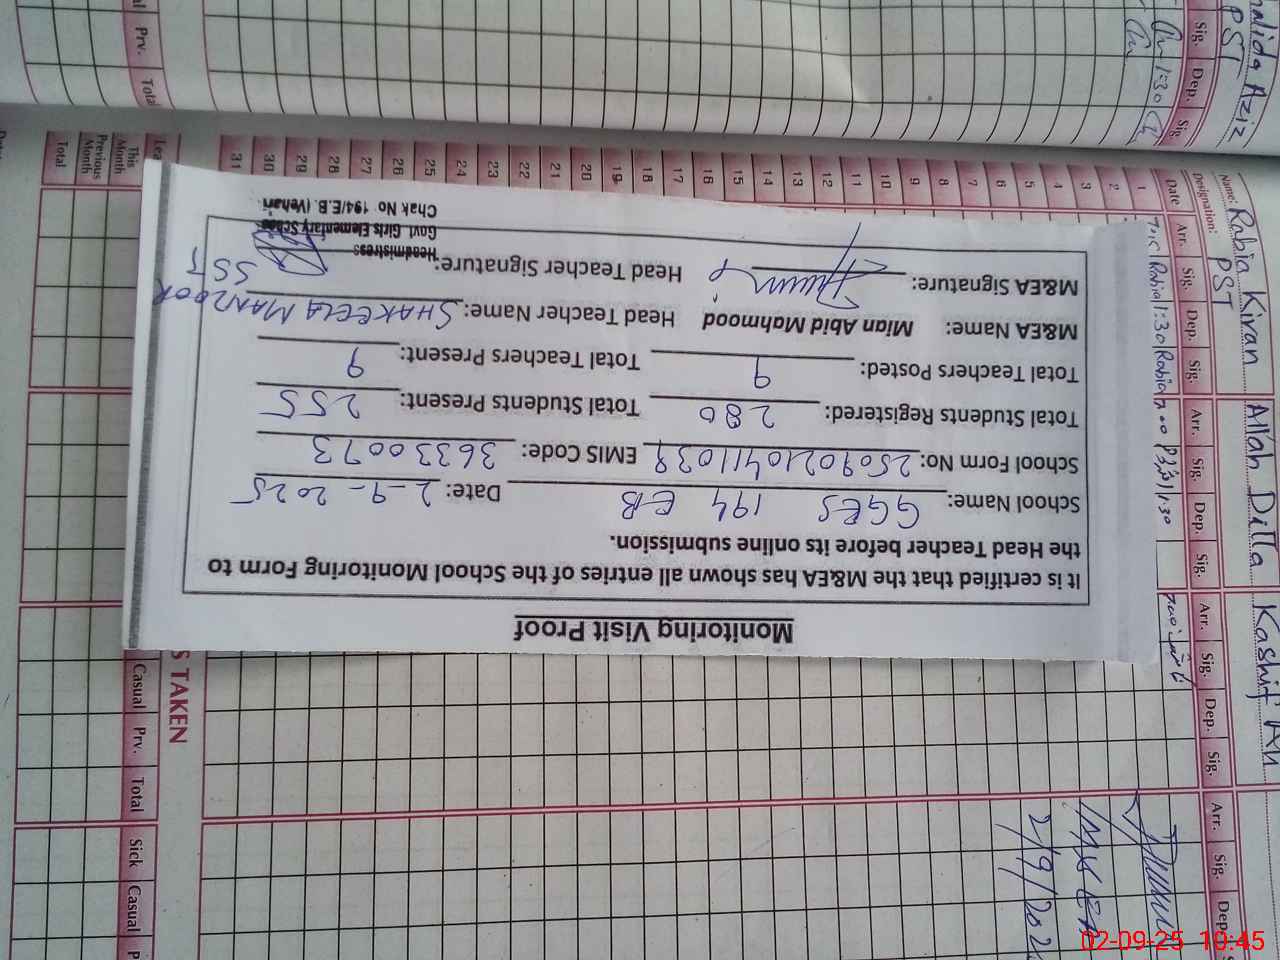 Monitoring Visit Proof
It is certified that the M&EA has shown all entries of the School Monitoring Form to
the Head Teacher before its online submission.
School Name: GGES 194 EB Date: 2-9-2025
School Form No: 25090210411039 EMIS Code: 36330073
Total Students Registered: 280 Total Students Present: 255
Total Teachers Posted: 9 Total Teachers Present: 9
M&EA Name: Mian Abid Mahmood Head Teacher Name: SHAKEELA MANZOOR
SST
M&EA Signature: Head Teacher Signature:
Headmistress
Govt. Girls Elementary School
Chak No. 194/E.B. (Vehari
Name: Rabia Kiran Allah Ditta Kashif
Designation: PST
Date Arr. Sig. Dep. Sig. Arr. Sig. Dep. Sig. Arr. Sig. Dep. Sig. Arr. Sig. Dep.
1 Rabia 1:30 Rabia 1:30
2
3
4
5
6
7
8
9
10
11
12
13
14
15
16
17
18
19
20
21
22
23
24
25
26
27
28
29
30
31
S TAKEN
Casual Prv. Total Sick Casual
This Month
Previous Month
Total
Aziz
PST
Sig. Dep. Sig
1:30
Prv. Total
M&EA
2/9/202
02-09-25 10:45